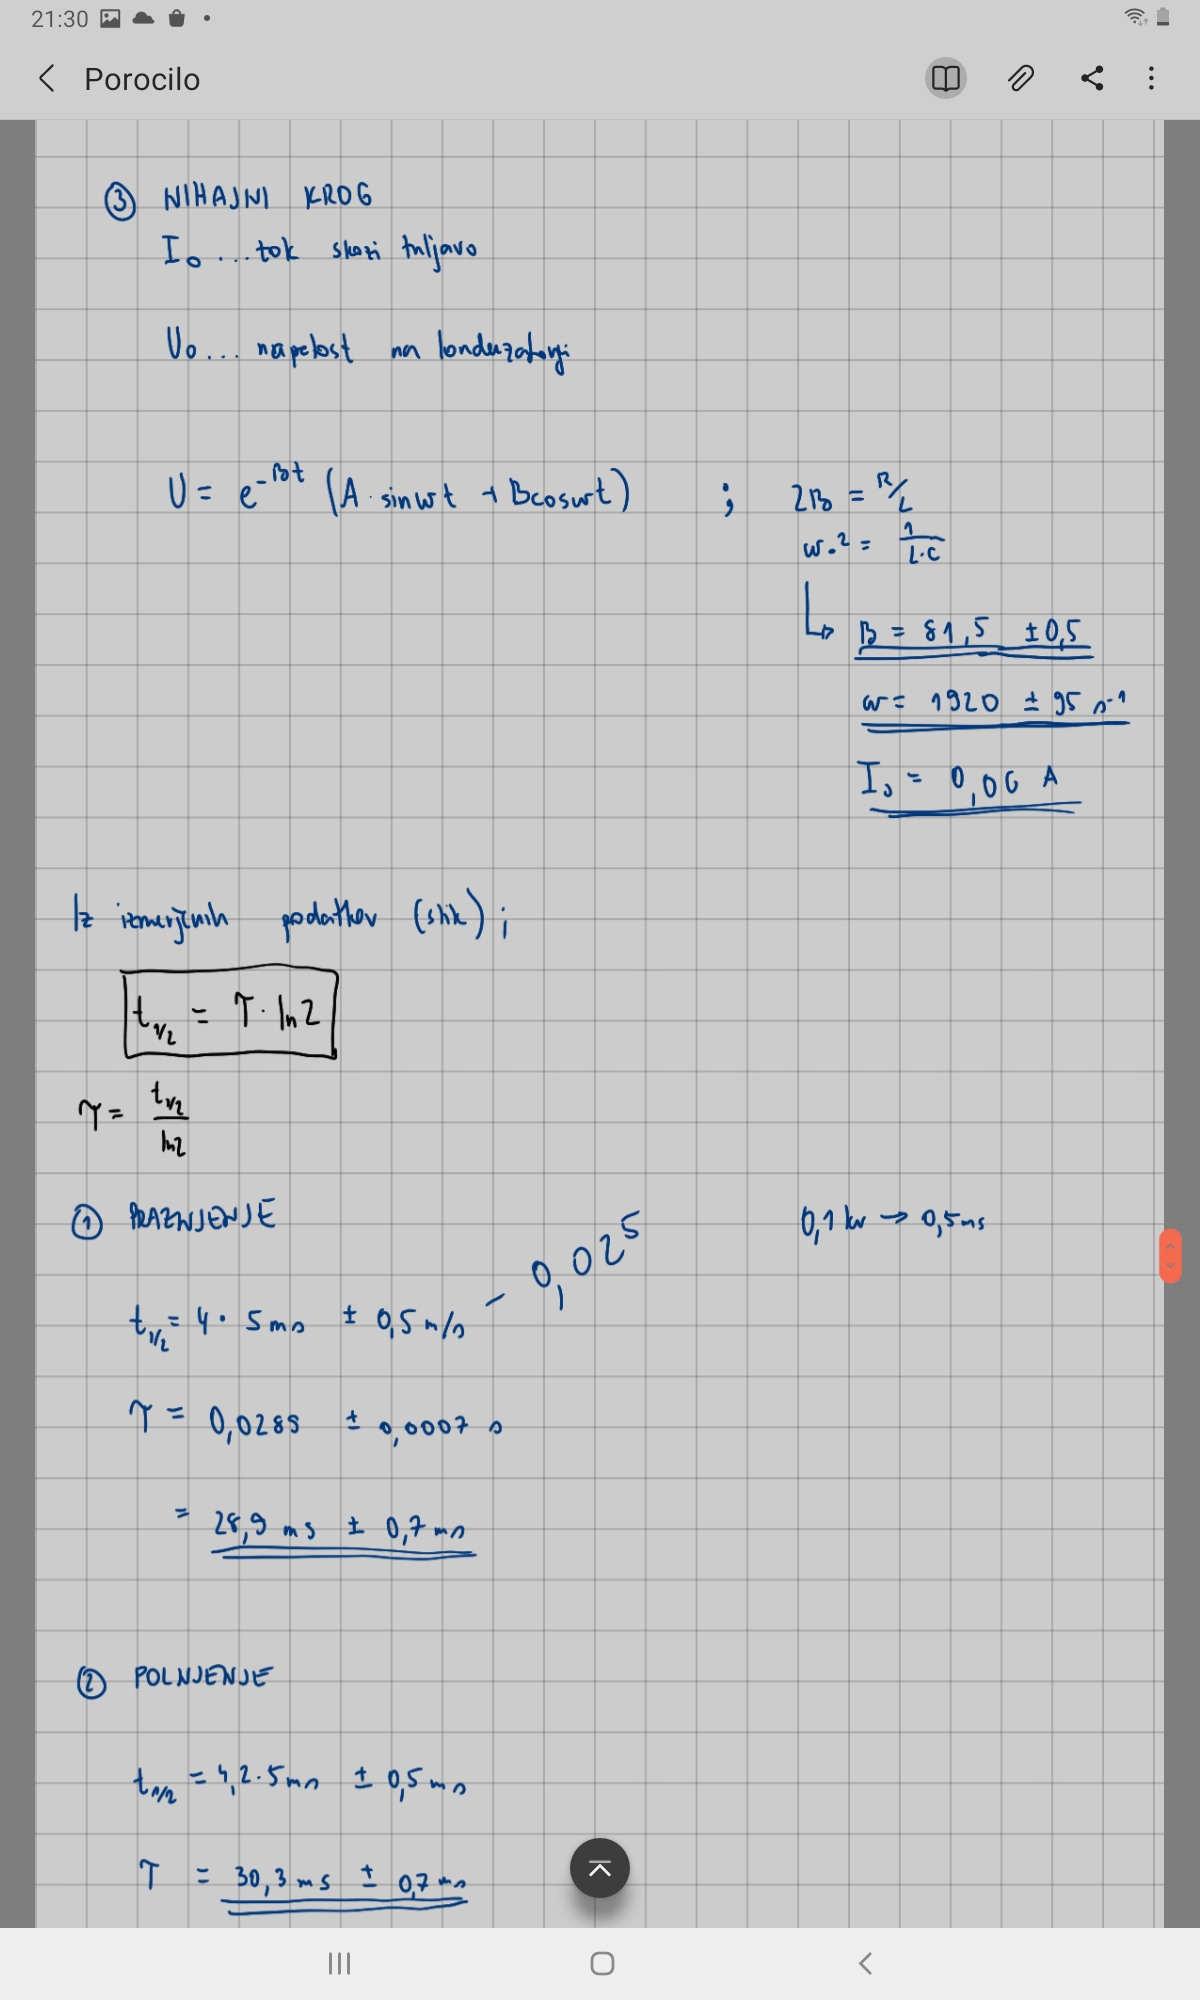 21:30
Porocilo
③ NIHAJNI KROG
I₀ ... tok skozi tuljavo
U₀ ... napetost na
U = e^-βt (A · sinωt + Bcosωt) ; 2β = R/L
ω₀² = 1/L·C
↳ β = 81,5 ± 0,5
ω = 1920 ± 95 s⁻¹
I₀ = 0,06 A
Iz izmerjenih podatkov (slik) ;
t₁/₂ = τ · ln2
τ = t₁/₂ / ln2
① PRAZNJENJE
0,1 kv → 0,5ms
t₁/₂ = 4 · 5ms ± 0,5 m/s – 0,025
τ = 0,0289 ± 0,0007 s
= 28,9 ms ± 0,7 ms
② POLNJENJE
t₁/₂ = 4,2 · 5ms ± 0,5 ms
τ = 30,3 ms ± 0,7 ms